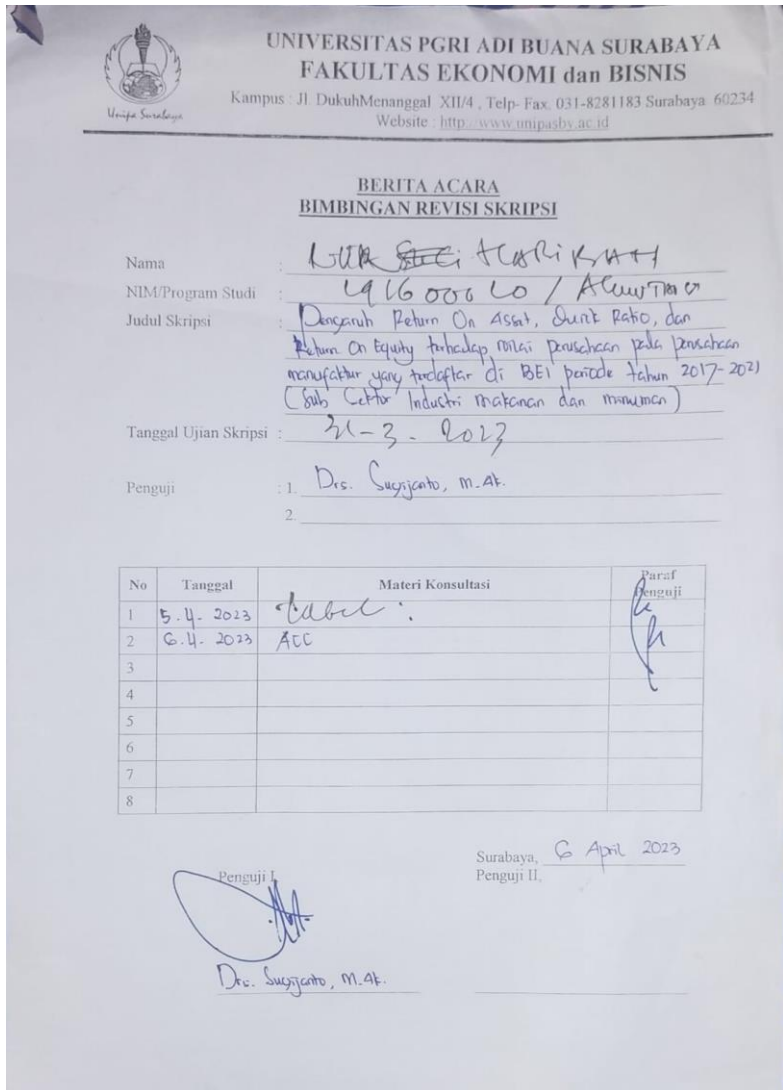 UNIVERSITAS PGRI ADI BUANA SURABAYA
FAKULTAS EKONOMI dan BISNIS
Kampus : Jl. DukuhMenanggal XII/4 , Telp- Fax. 031-8281183 Surabaya 60234
Website : http://www.unipasby.ac.id
Unipa Surabaya
BERITA ACARA
BIMBINGAN REVISI SKRIPSI
Nama : NUR
NIM/Program Studi : 191600010 /
Judul Skripsi : Pengaruh Return On Asset, Quick Ratio, dan
Return On Equity terhadap nilai perusahaan pada perusahaan
manufaktur yang terdaftar di BEI periode tahun 2017-2021
(Sub Cektor Industri makanan dan minuman)
Tanggal Ujian Skripsi : 31-3-2023
Penguji : 1. Drs. Sugijanto, M.Ak.
2.
No Tanggal Materi Konsultasi Paraf Penguji
1 5.4.2023 tabel :
2 6.4.2023 ACC
3
4
5
6
7
8
Surabaya, 6 April 2023
Penguji I, Penguji II,
Drs. Sugijanto, M.Ak.